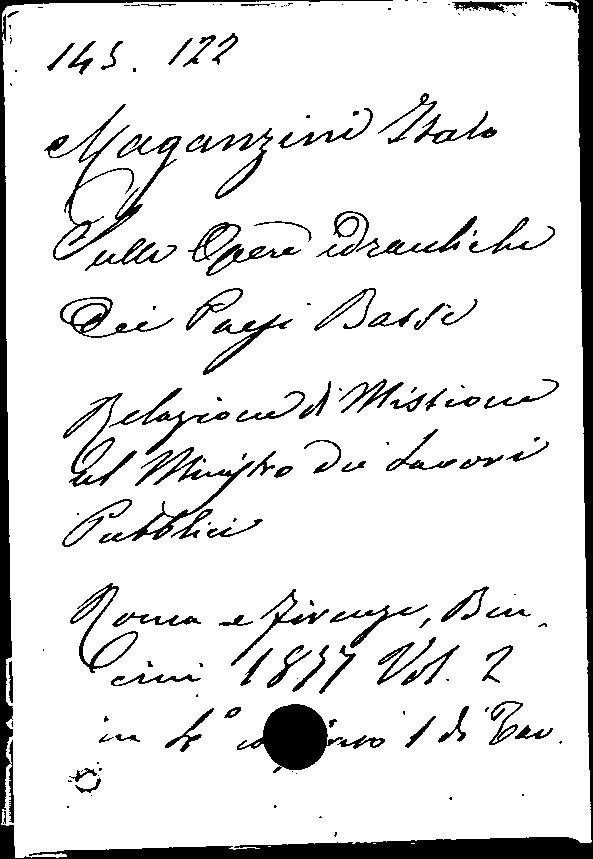 145. 122
Maganzini Italo
Sulle Opere idrauliche
Dei Paesi Bassi
Relazione di Missione
al Ministro dei Lavori
Pubblici
Roma e Firenze, Ben-
cini 1877 Vol. 2
in 4° 1 di Tav.